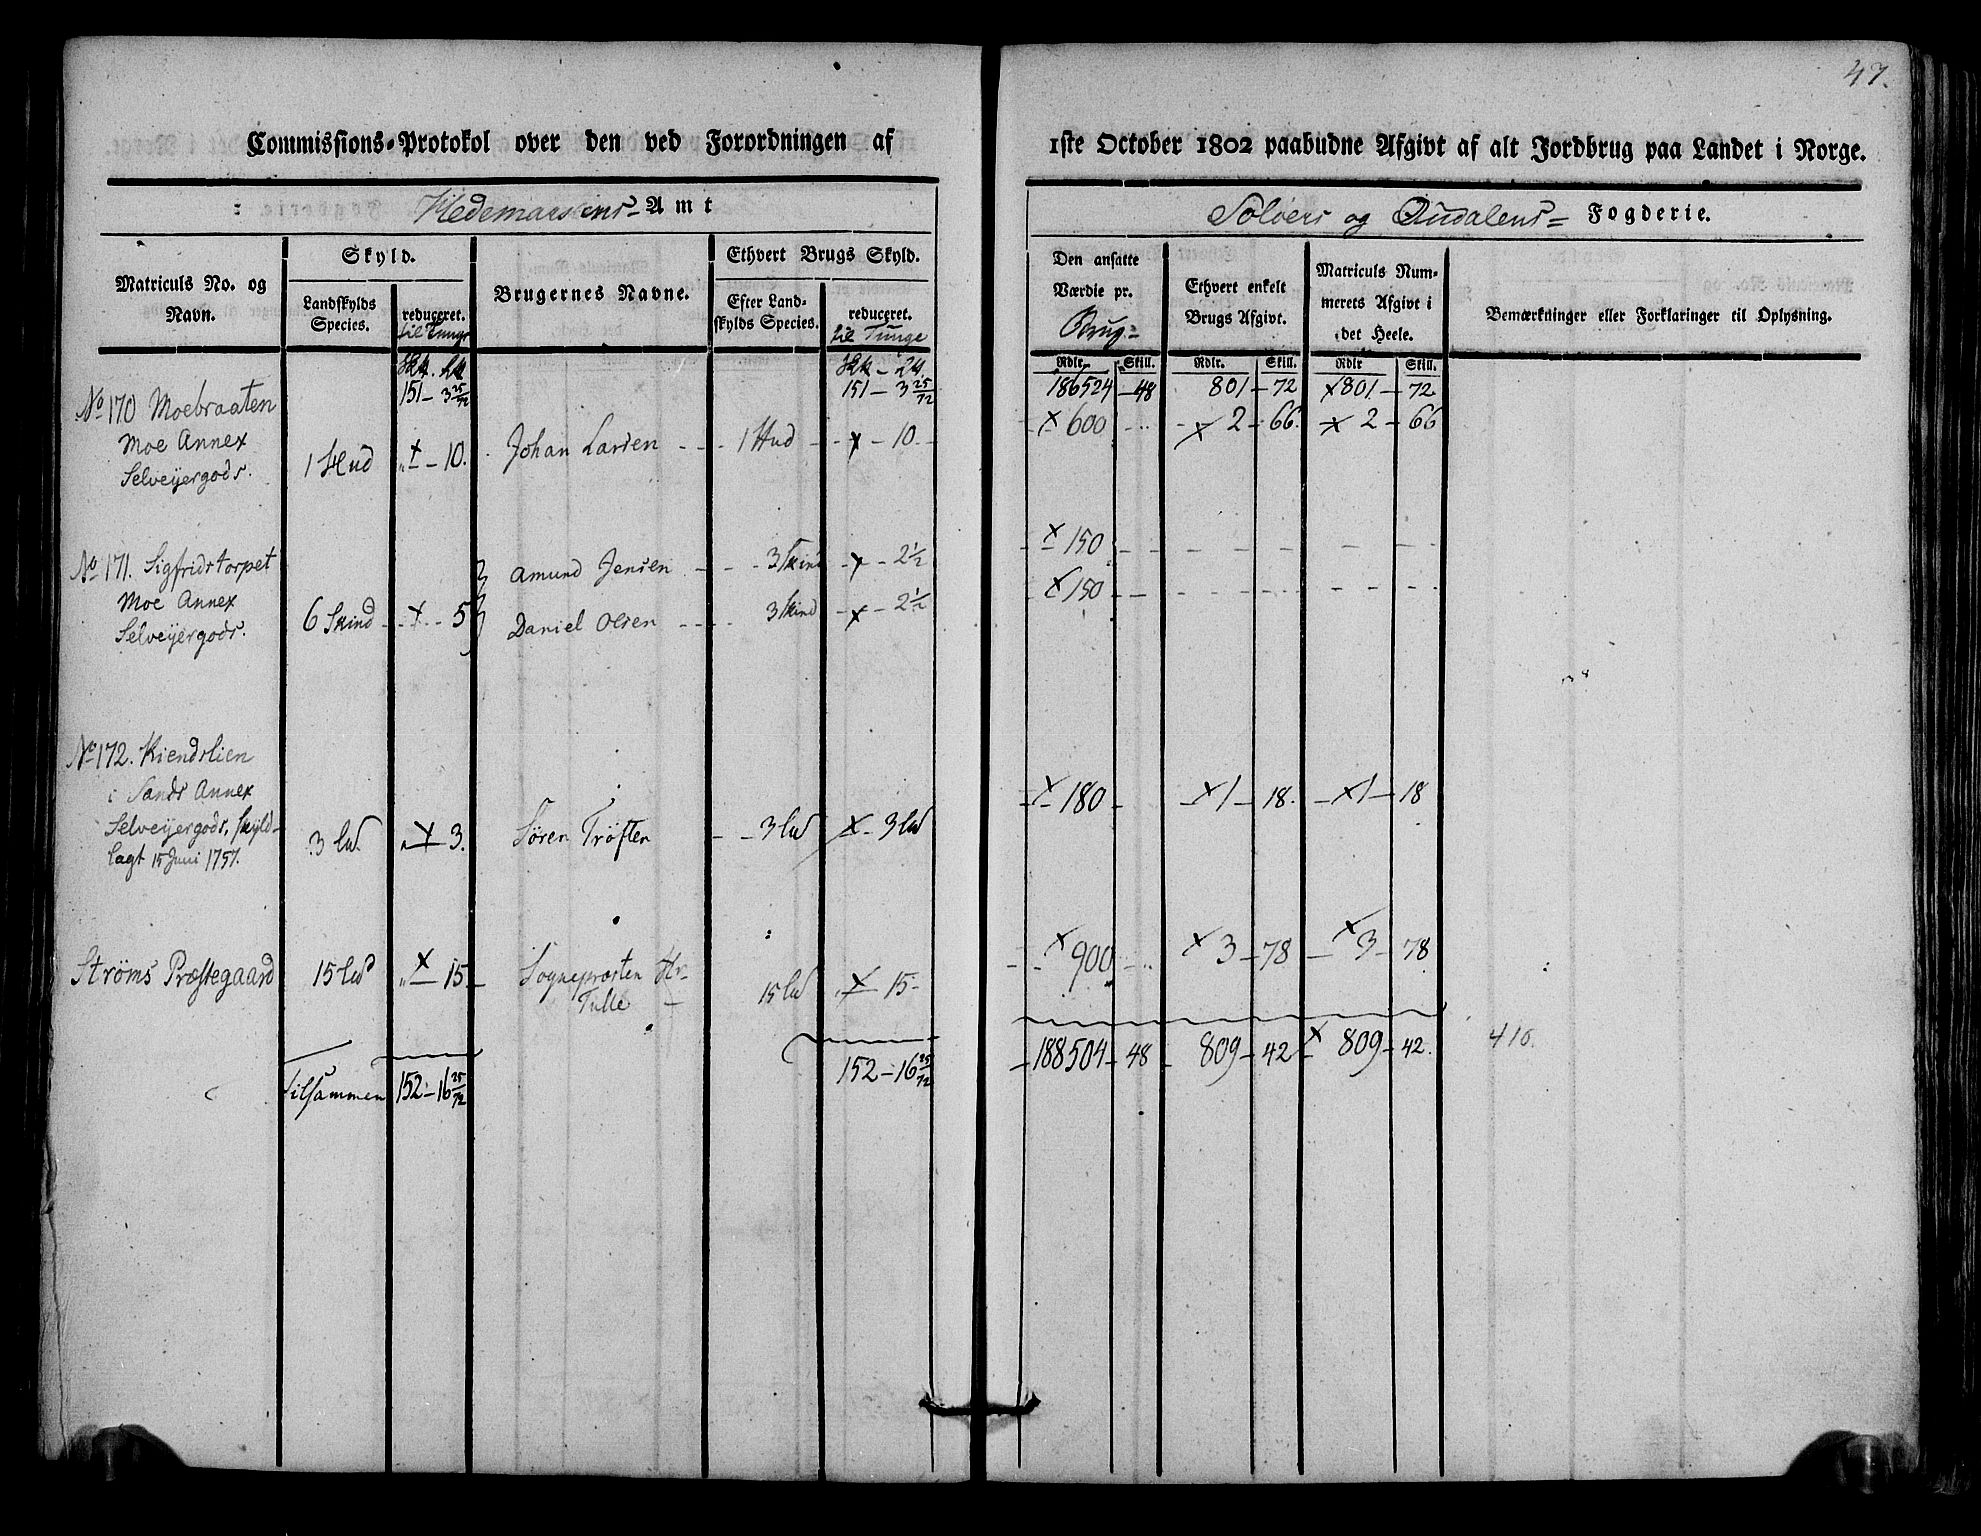 47.
Commissions-Protokol over den ved Forordningen af 1ste October 1802 paabudne Afgivt af alt Jordbrug paa Landet i Norge.
Hedemarkens Amt
Soløers og Oudalens Fogderie.
Matriculs No. og Navn.
Skyld.
Landskylds Species.
reduceret. til Tunge
Brugernes Navne.
Ethvert Brugs Skyld.
Efter Landskylds Species.
reduceret. til Tunge
Den ansatte Værdie pr. Brug
Ethvert enkelt Brugs Afgivt.
Matriculs Nummerets Afgivt i det Heele.
Bemærkninger eller Forklaringer til Oplysning.
Rdlr. Skill. Rdlr. Skill. Rdlr Skill.
151 - 3 25/72 151 - 3 25/72 186524 - 48 801 - 72 x 801 - 72
No 170 Moebraaten
Moe Annex
Selveyergods.
1 Hud x - 10. Johan Larsen - - 1 Hud - x - 10. x 600 x 2 - 66. x 2 - 66
No 171. Sigfridstorpet
Moe Annex
Selveyergods.
6 Skind - x - 5
Amund Jensen - - 3 Skind - x - 2 1/2 x 150
Daniel Olsen - - 3 Skind - x - 2 1/2 x 150
No 172. Kiendslien
i Sands Annex
Selveyergods, Skyld-
lagt 15 Juni 1757.
3 lw. x 3. Søren Trøften - - 3 lw x - 3 lw x 180 - x 1 - 18. - x 1 - 18
Strøms Præstegaard 15 lw x 15. Sognepræsten Hr.
Tulle 15 lw x 15 x 900 x 3 - 78 x 3 - 78
Tilsammen 152 - 16 25/72 152 - 16 25/72 188504 - 48 809 - 42 x 809 - 42. 410.